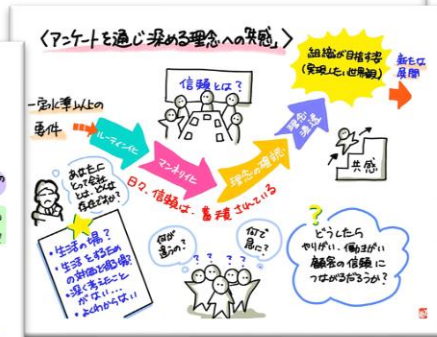 〈アンケートを通じ深める理念への"共感"〉
組織が目指す姿
(実現したい世界観)
新たな
展開
信頼とは？
一定水準以上の
事件
ルーティン化
マンネリ化
理念の確認
理念浸透
日々、信頼は、蓄積されている
共感
あなたに
とって会社
とは、どんな
存在ですか？
・生活の場？
・生活をするため
の対価を得る場？
・深く考えたこと
がない…
・よくわからない
何が
違うの？
何で
居るに？
？？？？
？
どうしたら
やりがい、働きがい
顧客の信頼に
つながるだろうか？